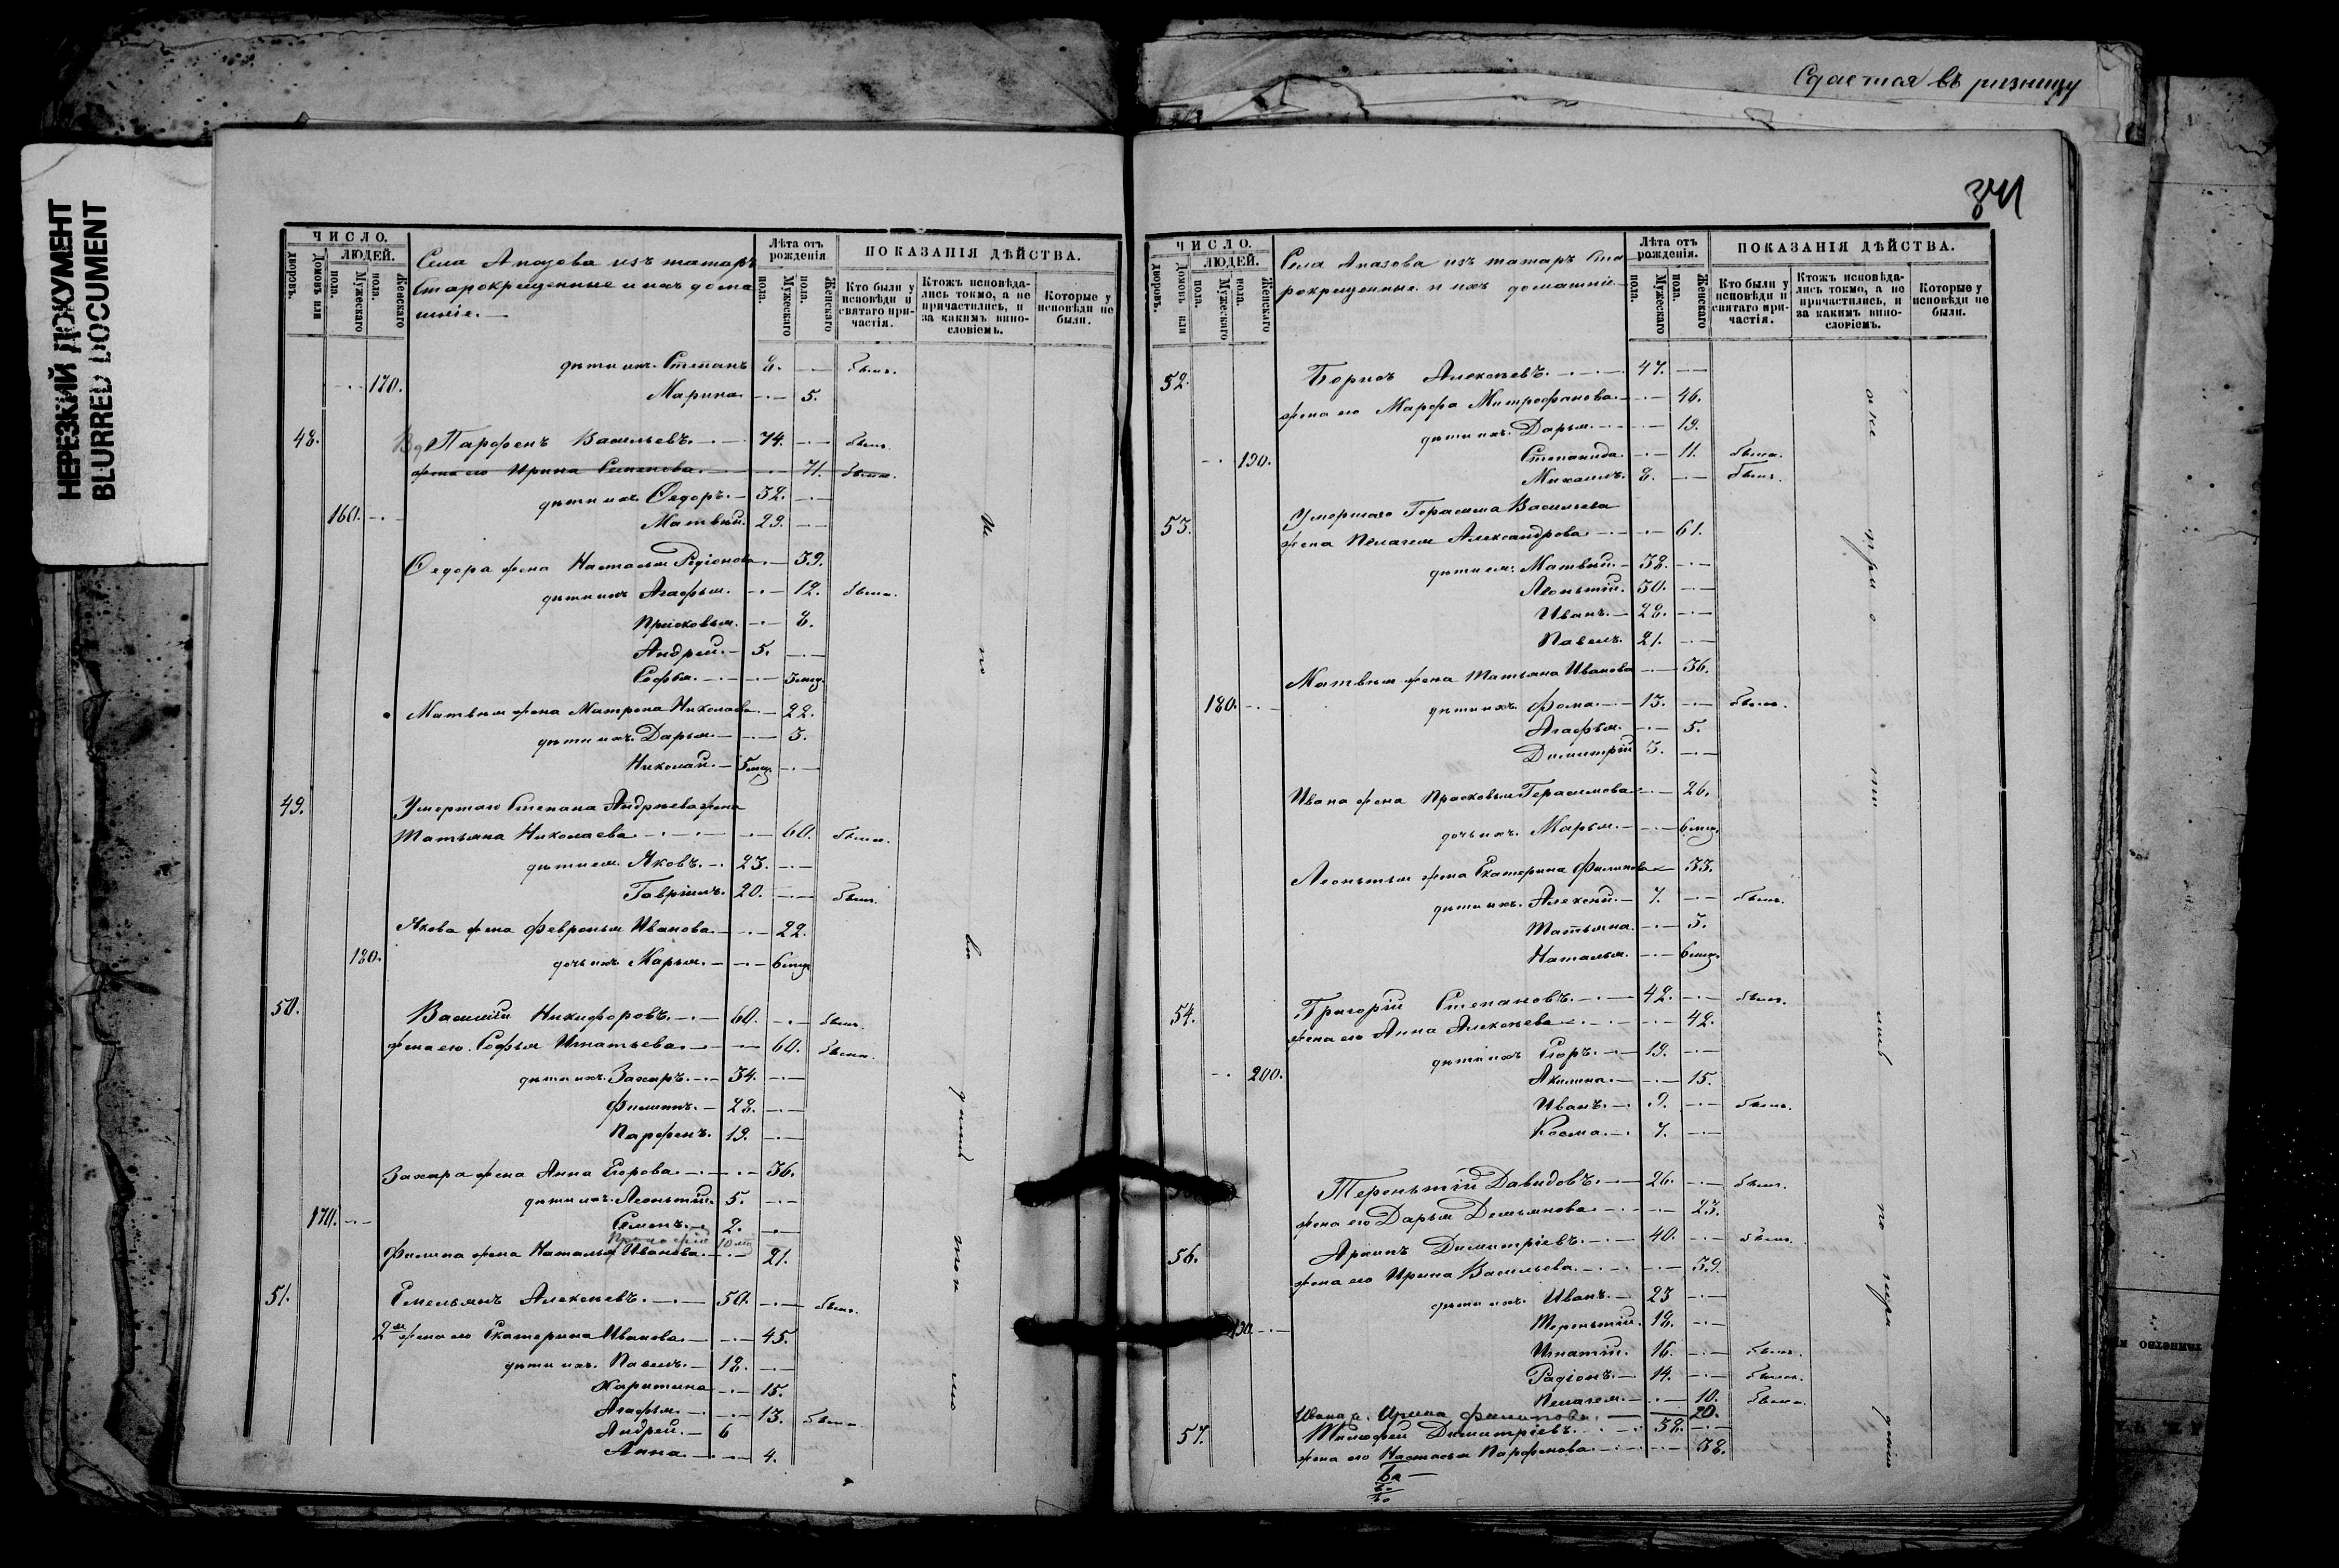 НЕРЕЗКИЙ ДОКУМЕНТ
BLURRED DOCUMENT
Сдается въ ризницу
341
ЧИСЛО.
Домовъ или дворовъ.
ЛЮДЕЙ.
Мужескаго пола.
Женскаго пола.
Села Апазова изъ татаръ
старокрещенные и ихъ дома
шніе.
Лѣта отъ рожденія
Мужескаго пола.
Женскаго пола.
ПОКАЗАНІЯ ДѢЙСТВА.
Кто были у исповѣди и святаго при-частія.
Ктожъ исповѣда-лись токмо, а не причастились, и за какимъ вино-словіемъ.
Которые у исповѣди не были.
дѣти ихъ. Степанъ 8. былъ.
170. Марина 5.
48. Вд Парфенъ Васильевъ. 74. былъ.
жена его Ирина Семенова. 71. была.
дѣти ихъ. Ѳедоръ. 32.
160. Матвѣй. 29.
Ѳедора жена Настасья Родіонова 39.
дѣти ихъ Агафья. 12. была.
Прасковья. 8.
Андрей. 5.
Софья. 3 мѣц.
Матвѣя жена Матрона Николаева 22.
дѣти ихъ. Дарья. 3.
Николай. 5 мѣц.
49. Умершаго Степана Андрѣева жена
Татьяна Николаева 60. была.
дѣти ея. Яковъ. 23.
Гавріилъ. 20. былъ.
Якова жена Февронья Иванова. 22.
180. дочь ихъ Марья. 6 мѣц.
50. Василій Никифоровъ. 60. былъ.
жена его. Софья Игнатьева 60. была.
дѣти ихъ. Захаръ. 34.
Филиппъ. 28.
Парфенъ. 19.
Захара жена Анна Егорова 36.
дѣти ихъ. Леонтій. 5.
170. Семенъ. 2.
10 мѣц
Филипа жена Наталья Иванова. 21.
51. Емельянъ Алексѣевъ. 50. былъ.
2я жена его Екатерина Иванова 45.
дѣти ихъ. Павелъ. 18.
Харитина 15.
Агафья. 13. была.
Андрей. 6
Анна 4.
и по во
ЧИСЛО.
Домовъ или дворовъ.
ЛЮДЕЙ.
Мужескаго пола.
Женскаго пола.
Села Апазова изъ татаръ ста
рокрещенные и ихъ домашніе
Лѣта отъ рожденія.
Мужескаго пола.
Женскаго пола.
ПОКАЗАНІЯ ДѢЙСТВА.
Кто были у исповѣди и святаго при-частія.
Ктожъ исповѣда-лись токмо, а не причастились, и за какимъ вино-словіемъ.
Которые у исповѣди не были.
52. Борисъ Алексѣевъ. 47.
жена его Марфа Митрофанова 46.
дѣти ихъ. Дарья. 19.
190. Степанида 11. была.
Михаилъ. 8. былъ.
53. Умершаго Герасима Васильева
жена Пелагея Александрова 61.
дѣти ея. Матвѣй. 38.
Леонтій. 30.
Иванъ. 28.
Павелъ. 21.
Матвѣя жена Татьяна Иванова 36.
180. дѣти ихъ. Фома. 13. былъ.
Агафья. 5.
Димитрій 3.
Ивана жена Прасковья Герасимова 26.
дочь ихъ. Марья. 6 мѣц.
Леонтья жена Екатерина Филипова 33.
дѣти ихъ. Алексѣй. 7. былъ.
Татьяна. 3.
Наталья. 6 мѣц.
54. Григорій Степановъ. 42. былъ.
жена его Анна Алексѣева 42.
дѣти ихъ Егоръ. 19.
200. Акилина. 15.
Иванъ. 9. былъ.
Косма. 7.
Терентій Давидовъ. 26. былъ.
жена его Дарья Демьянова 23.
56. Архипъ Димитріевъ. 40. былъ.
жена его Ирина Васильева. 39.
дѣти ихъ. Иванъ. 23
190 Терентій. 18.
Игнатій. 16. былъ.
Радіонъ. 14. былъ.
Пелагея. 10. была.
Ивана ж. Ирина Филипова 20.
57. Тимофей Димитріевъ. 38.
жена его Настасья Парфенова 38.